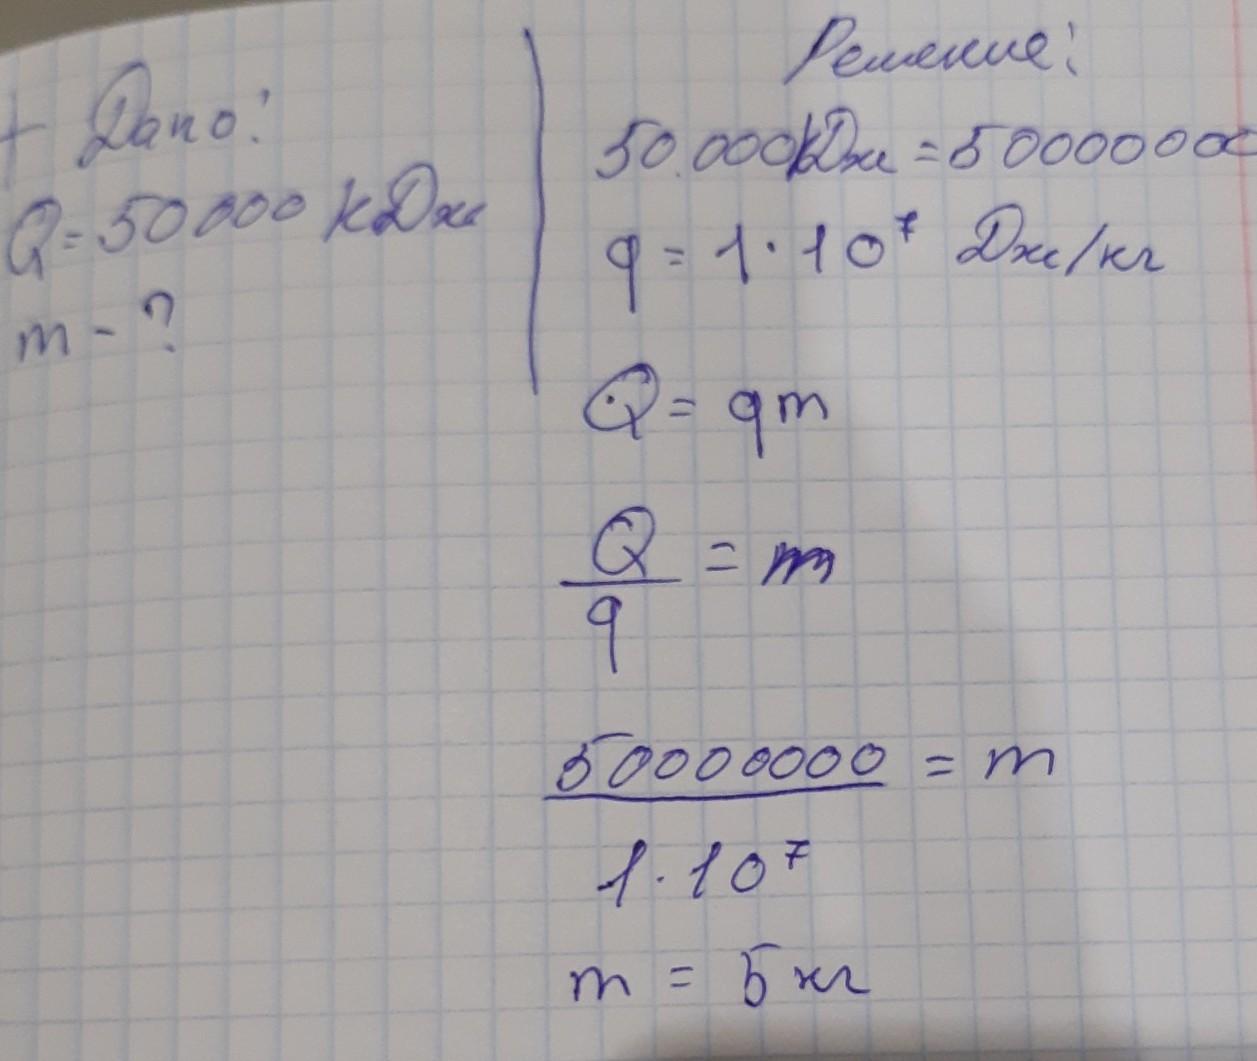 + Дано:
Q = 50000 кДж
m - ?
Решение:
50.000кДж = 50000000
q = 1 · 10⁷ Дж/кг
Q = qm
Q/q = m
50000000/1·10⁷ = m
m = 5 кг